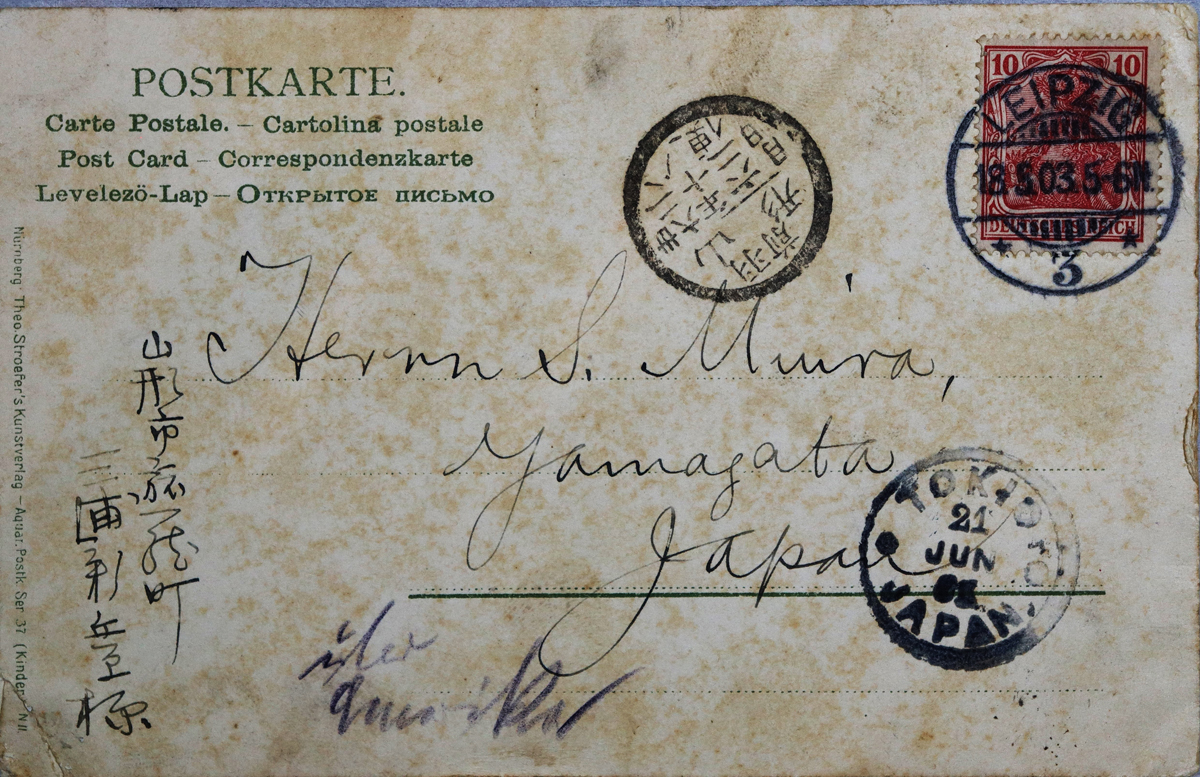 POSTKARTE.
Carte Postale. – Cartolina postale
Post Card – Correspondenzkarte
Levelezö-Lap – Открытое письмо
10 10
DEUTSCHES REICH
LEIPZIG
18.5.03.5-6N
3
羽前
山形
Herrn S. Miura,
Yamagata
Japan
TOKIO
21
JUN
JAPAN.
über
Amerika
山形市旅籠町
三浦
様
Nürnberg Theo. Stroefer's Kunstverlag – Aquar. Postk. Ser 37 (Kinder